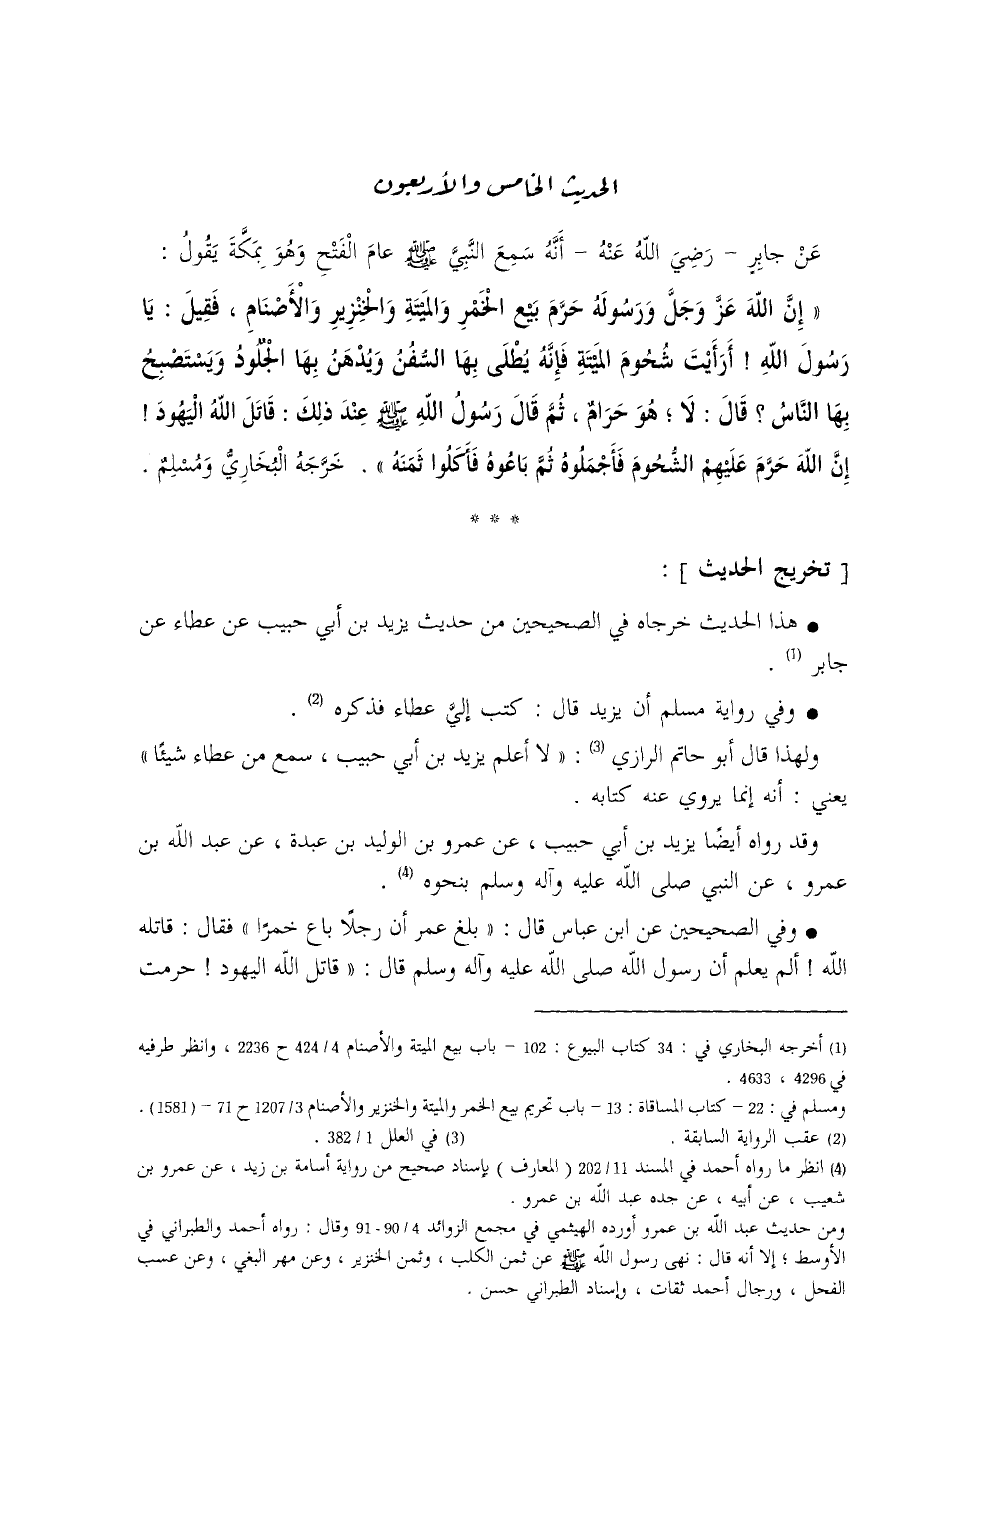 الحديث الخامس والأربعون
عَنْ جابِرٍ - رَضِيَ اللّهُ عَنْهُ - أَنَّهُ سَمِعَ النَّبِيَّ ﷺ عامَ الْفَتْحِ وَهُوَ بِمَكَّةَ يَقُولُ :
« إِنَّ اللّهَ عَزَّ وَجَلَّ وَرَسُولَهُ حَرَّمَ بَيْعِ الْخَمْرِ وَالمَيْتَةِ وَالْخِنْزِيرِ وَالْأَصْنَامِ ، فَقِيلَ : يَا
رَسُولَ اللّهِ ! أَرَأَيْتَ شُحُومَ المَيْتَةِ فَإِنَّهُ يُطْلَى بِهَا السُّفُنُ وَيُدْهَنُ بِهَا الْجُلُودُ وَيَسْتَصْبِحُ
بِهَا النَّاسُ ؟ قَالَ : لَا ؛ هُوَ حَرَامٌ ، ثُمَّ قَالَ رَسُولُ اللّهِ ﷺ عِنْدَ ذلِكَ : قَاتَلَ اللّهُ الْيَهُودَ !
إِنَّ اللّهَ حَرَّمَ عَلَيْهِمْ الشُّحُومَ فَأَجْمَلُوهُ ثُمَّ بَاعُوهُ فَأَكَلُوا ثَمَنَهُ » . خَرَّجَهُ الْبُخَارِيُّ وَمُسْلِمٌ .
* * *
[ تخريج الحديث ] :
● هذا الحديث خرجاه في الصحيحين من حديث يزيد بن أبي حبيب عن عطاء عن
جابر (1) .
● وفي رواية مسلم أن يزيد قال : كتب إليَّ عطاء فذكره (2) .
ولهذا قال أبو حاتم الرازي (3) : « لا أعلم يزيد بن أبي حبيب ، سمع من عطاء شيئًا »
يعني : أنه إنما يروي عنه كتابه .
وقد رواه أيضًا يزيد بن أبي حبيب ، عن عمرو بن الوليد بن عبدة ، عن عبد اللّه بن
عمرو ، عن النبي صلى اللّه عليه وآله وسلم بنحوه (4) .
● وفي الصحيحين عن ابن عباس قال : « بلغ عمر أن رجلًا باع خمرًا » فقال : قاتله
اللّه ! ألم يعلم أن رسول اللّه صلى اللّه عليه وآله وسلم قال : « قاتل اللّه اليهود ! حرمت
(1) أخرجه البخاري في : 34 كتاب البيوع : 102 - باب بيع الميتة والأصنام 4/ 424 ح 2236 ، وانظر طرفيه
في 4296 ، 4633 .
ومسلم في : 22 - كتاب المساقاة : 13 - باب تحريم بيع الخمر والميتة والخنزير والأصنام 3/ 1207 ح 71 - (1581) .
(2) عقب الرواية السابقة . (3) في العلل 1 / 382 .
(4) انظر ما رواه أحمد في المسند 11/ 202 ( المعارف ) بإسناد صحيح من رواية أسامة بن زيد ، عن عمرو بن
شعيب ، عن أبيه ، عن جده عبد اللّه بن عمرو .
ومن حديث عبد اللّه بن عمرو أورده الهيثمي في مجمع الزوائد 4/ 90 - 91 وقال : رواه أحمد والطبراني في
الأوسط ؛ إلا أنه قال : نهى رسول اللّه ﷺ عن ثمن الكلب ، وثمن الخنزير ، وعن مهر البغي ، وعن عسب
الفحل ، ورجال أحمد ثقات ، وإسناد الطبراني حسن .